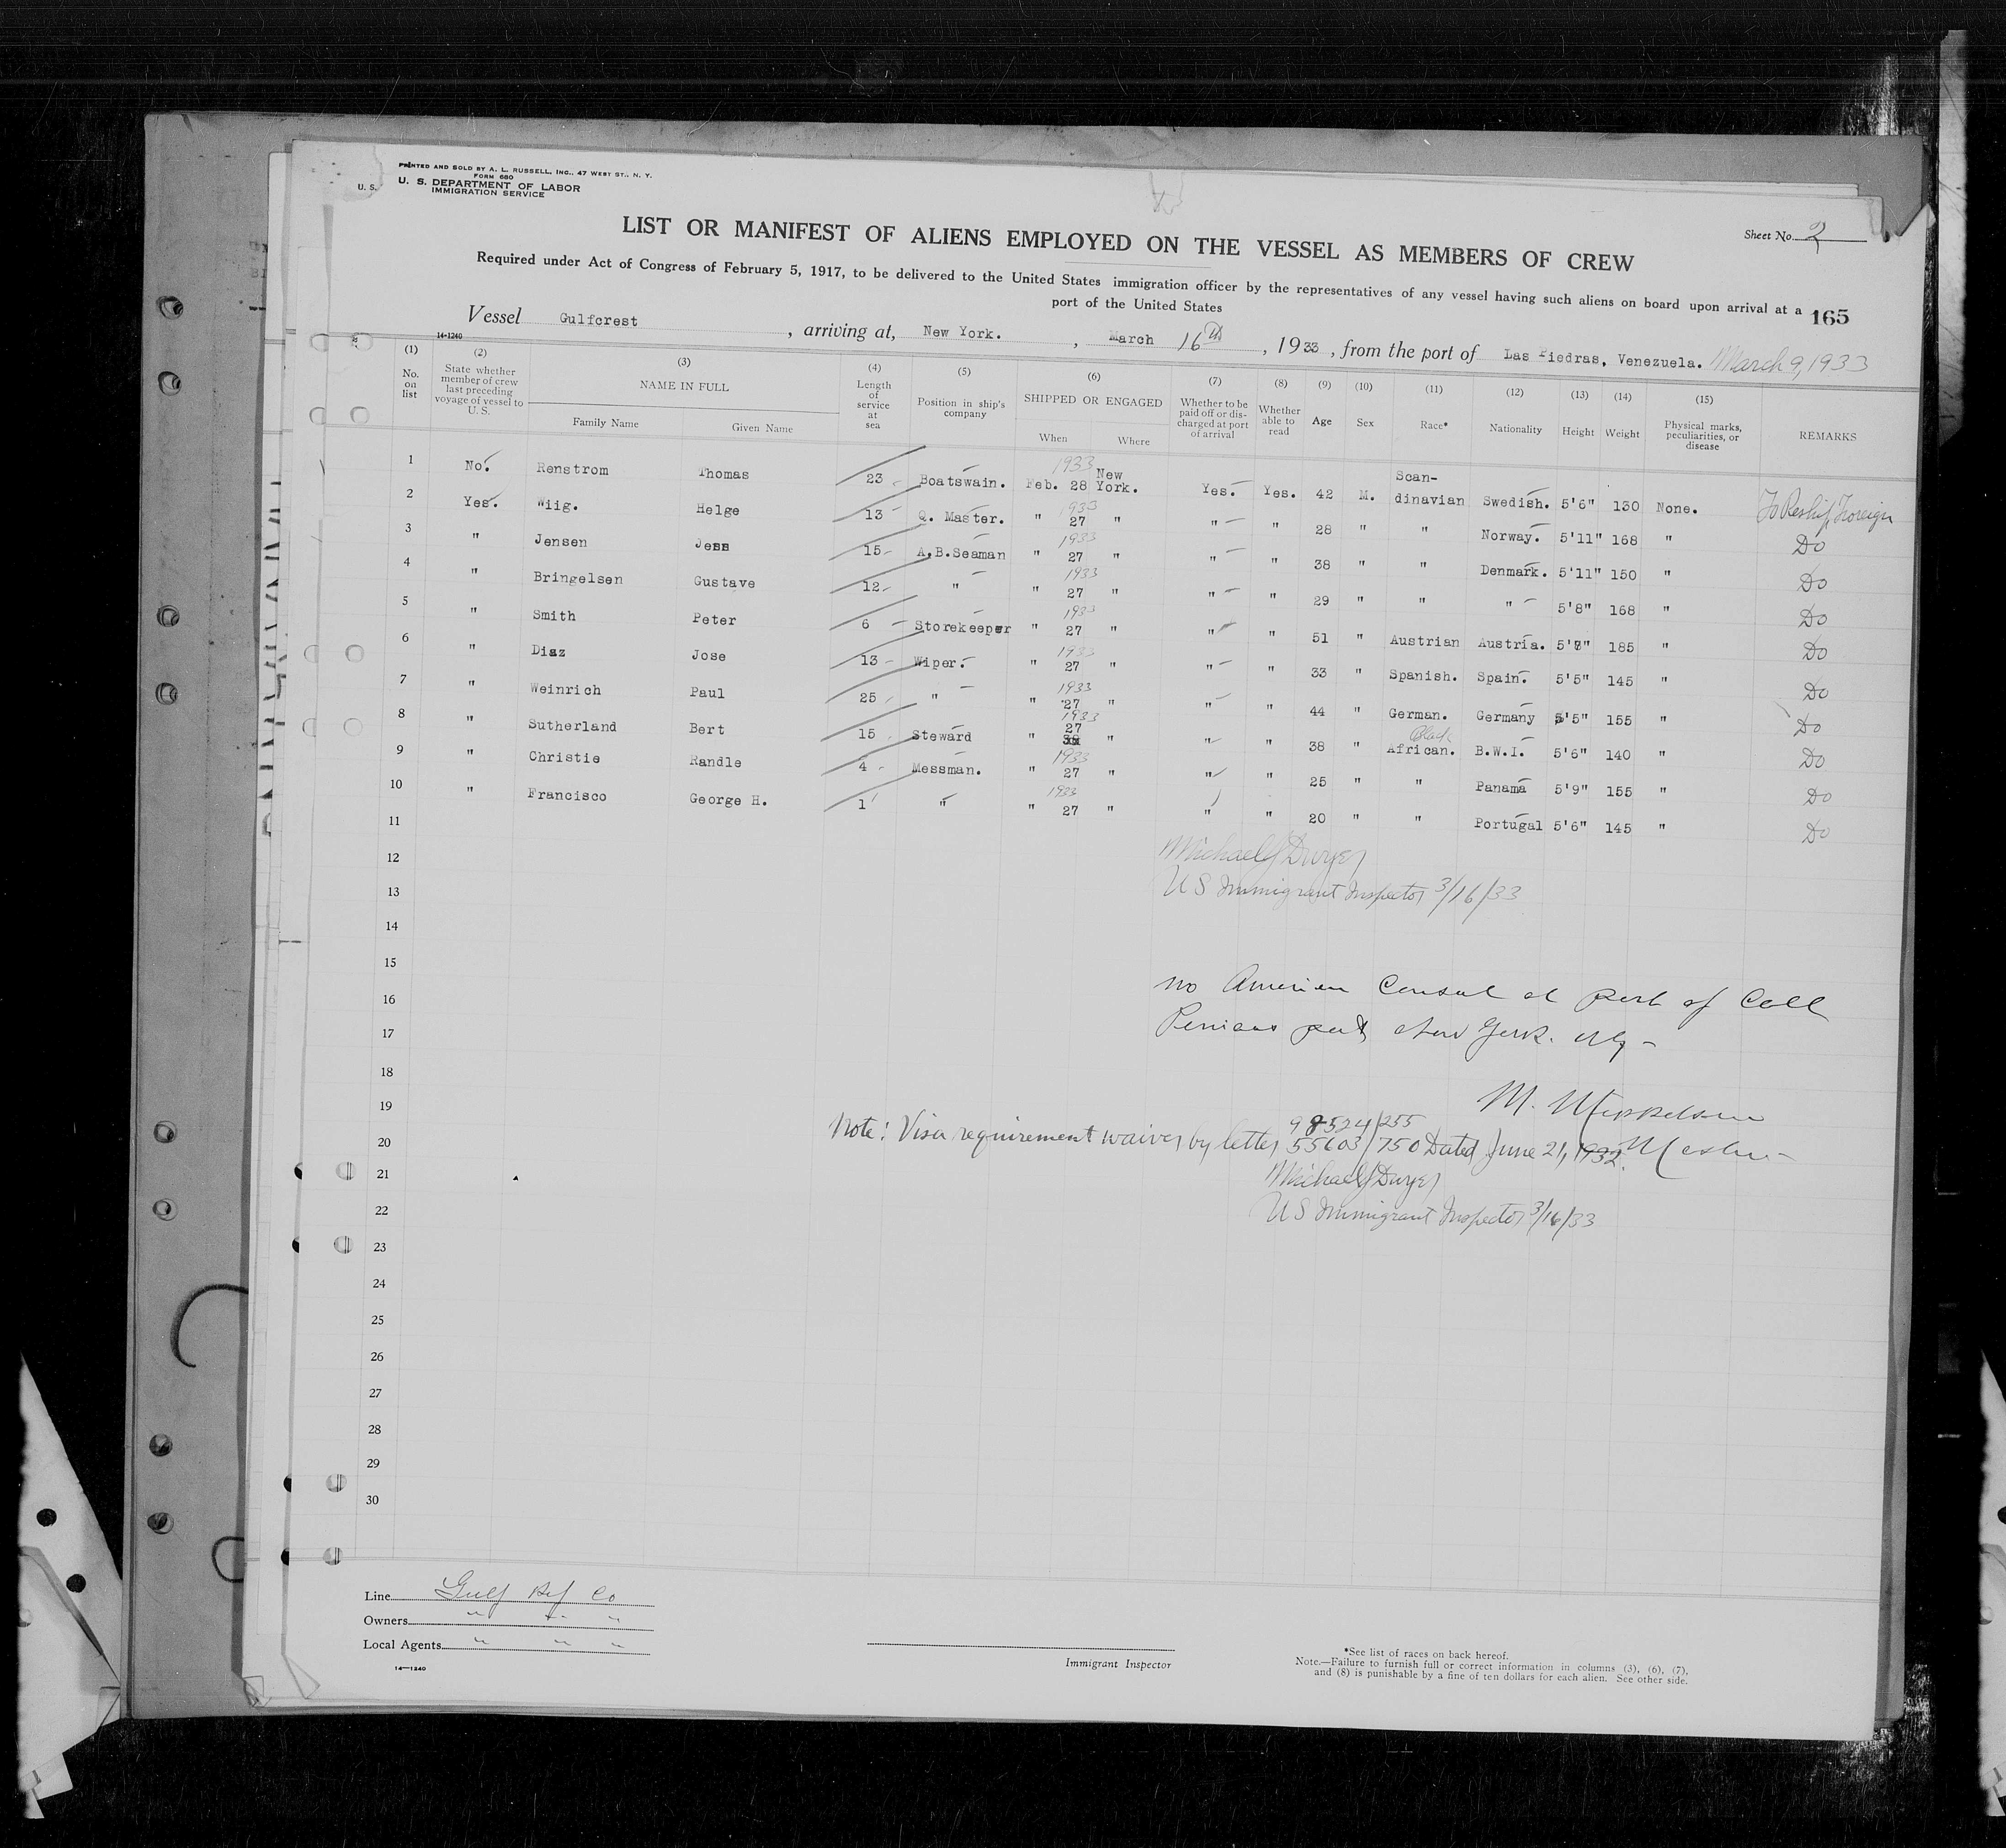 PRINTED AND SOLD BY A. L. RUSSELL, INC., 47 WEST ST., N. Y.
FORM 680
U. S. DEPARTMENT OF LABOR
IMMIGRATION SERVICE
U. S.
Sheet No. 2
LIST OR MANIFEST OF ALIENS EMPLOYED ON THE VESSEL AS MEMBERS OF CREW
Required under Act of Congress of February 5, 1917, to be delivered to the United States immigration officer by the representatives of any vessel having such aliens on board upon arrival at a
port of the United States
165
Vessel Gulfcrest, arriving at, New York., March 16th, 1933, from the port of Las Piedras, Venezuela. March 9, 1933
14-1240
(1) No. on list
(2) State whether member of crew last preceding voyage of vessel to U. S.
(3) NAME IN FULL Family Name Given Name
(4) Length of service at sea
(5) Position in ship's company
(6) SHIPPED OR ENGAGED When Where
(7) Whether to be paid off or discharged at port of arrival
(8) Whether able to read
(9) Age
(10) Sex
(11) Race*
(12) Nationality
(13) Height
(14) Weight
(15) Physical marks, peculiarities, or disease
REMARKS
1 No. Renstrom Thomas 23 Boatswain. 1933 Feb. 28 New York. Yes. Yes. 42 M. Scan-dinavian Swedish. 5'6" 130 None. To Reship Foreign
2 Yes. Wiig. Helge 13 Q. Master. 1933 " 27 " " " 28 " " Norway. 5'11" 168 " Do
3 " Jensen Jens 15 A.B.Seaman 1933 " 27 " " " 38 " " Denmark. 5'11" 150 " Do
4 " Bringelsen Gustave 12 " 1933 " 27 " " " 29 " " " 5'8" 168 " Do
5 " Smith Peter 6 Storekeeper 1933 " 27 " " " 51 " Austrian Austria. 5'8" 185 " Do
6 " Diaz Jose 13 Wiper. 1933 " 27 " " " 33 " Spanish. Spain. 5'5" 145 " Do
7 " Weinrich Paul 25 " 1933 " 27 " " " 44 " German. Germany 5'5" 155 " Do
8 " Sutherland Bert 15 Steward 1933 " 27 " " " 38 " Black African. B.W.I. 5'6" 140 " Do
9 " Christie Randle 4 Messman. 1933 " 27 " " " 25 " " Panama 5'9" 155 " Do
10 " Francisco George H. 1 " 1933 " 27 " " " 20 " " Portugal 5'6" 145 " Do
11
12
Michael J Dwyer
13
US Immigrant Inspector 3/16/33
14
15
16
no American Consul at port of Call
17
port New York. Ny-
18
19
M. Mikkelsen
20
98524/255
Note: Visa requirement waiver by letter 55603/750 Dated June 21, 1932. Master
21
Michael J Dwyer
22
US Immigrant Inspector 3/16/33
23
24
25
26
27
28
29
30
Line Gulf Ref Co
Owners " " "
Local Agents " " "
14—1240
Immigrant Inspector
*See list of races on back hereof.
Note.—Failure to furnish full or correct information in columns (3), (6), (7),
and (8) is punishable by a fine of ten dollars for each alien. See other side.